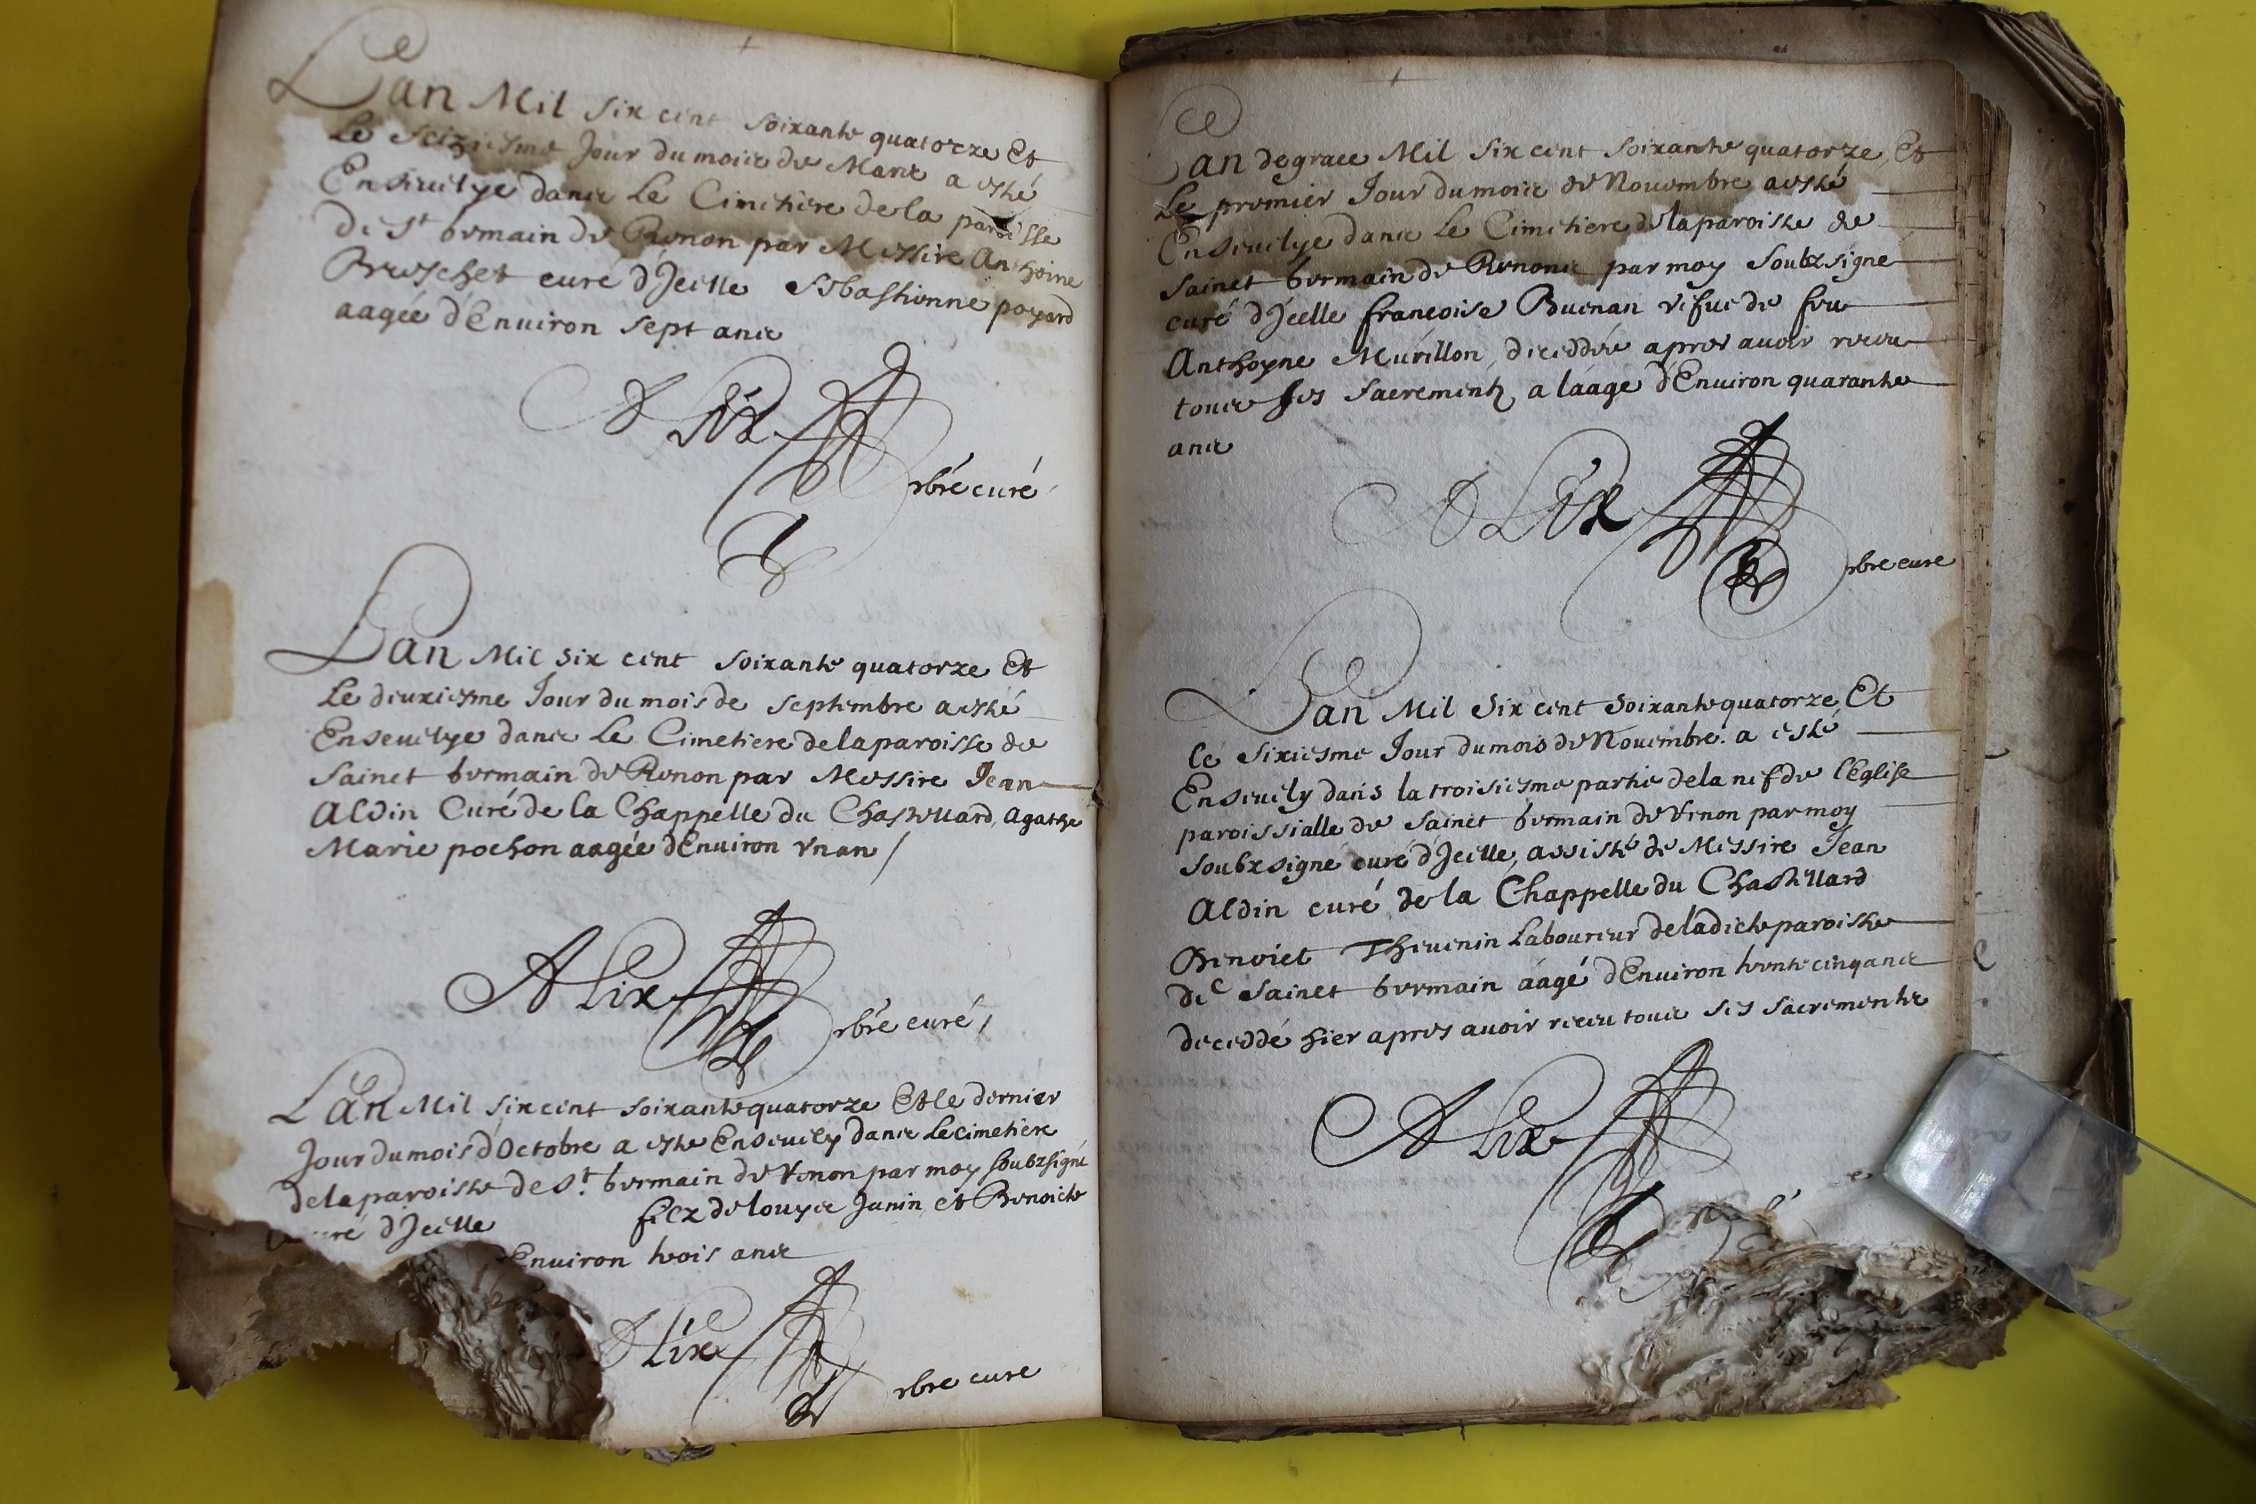 Lan Mil six cent soixante quatorze Et
Le seiziesme Jour du moiis de Mars a esté
Enseuelye dans Le Cimetiere de la paroisse
De St Germain de Renon par Messire Anthoine
Bruschet curé d'Jcelle Sebastienne poyard
aagée d'Enuiron sept ans
A Lix
pbre curé
Lan Mil six cent soixante quatorze Et
Le deuxiesme Jour du mois de septembre a esté
Enseuelye dans Le Cimetiere de la paroisse de
Sainct Germain de Renon par Messire Jean
Aldin Curé de la Chappelle du Chastellard, Agathe
Marie pochon aagée d'Enuiron vn an /
A Lix
pbre curé /
Lan Mil six cent soixante quatorze Et le dernier
Jour du mois d'Octobre a esté Enseuely dans Le cimetiere
de la paroisse de St. Germain de Renon par moy soubzsigné
curé d'Jcelle filz de Louys Janin et Benoicte
Enuiron trois ans
A Lix
pbre curé
Lan de grace Mil six cent soixante quatorze, Et
Le premier Jour du mois de Nouembre a esté
Enseuelye dans Le Cimetiere de la paroisse de
Sainct Germain de Renon par moy soubzsigné
curé d'Jcelle francoise Buenan vefue de feu
Anthoyne Murillon, deceddée apres auoir receu
tous ses sacrementz, a l'aage d'Enuiron quarante
ans
A Lix
pbre curé
Lan Mil six cent soixante quatorze, Et
le sixiesme Jour du mois de Nouembre a esté
Enseuely dans la troisiesme partie de la nef de l'Eglise
paroissialle de sainct Germain de Renon par moy
soubzsigné curé d'Jcelle, assisté de Messire Jean
Aldin curé de la Chappelle du Chastellard
Benoict Theuenin Laboureur de la dicte paroisse
de sainct Germain aagé d'Enuiron trente cinq ans
deceddé hier apres auoir receu tous ses sacrements
A Lix